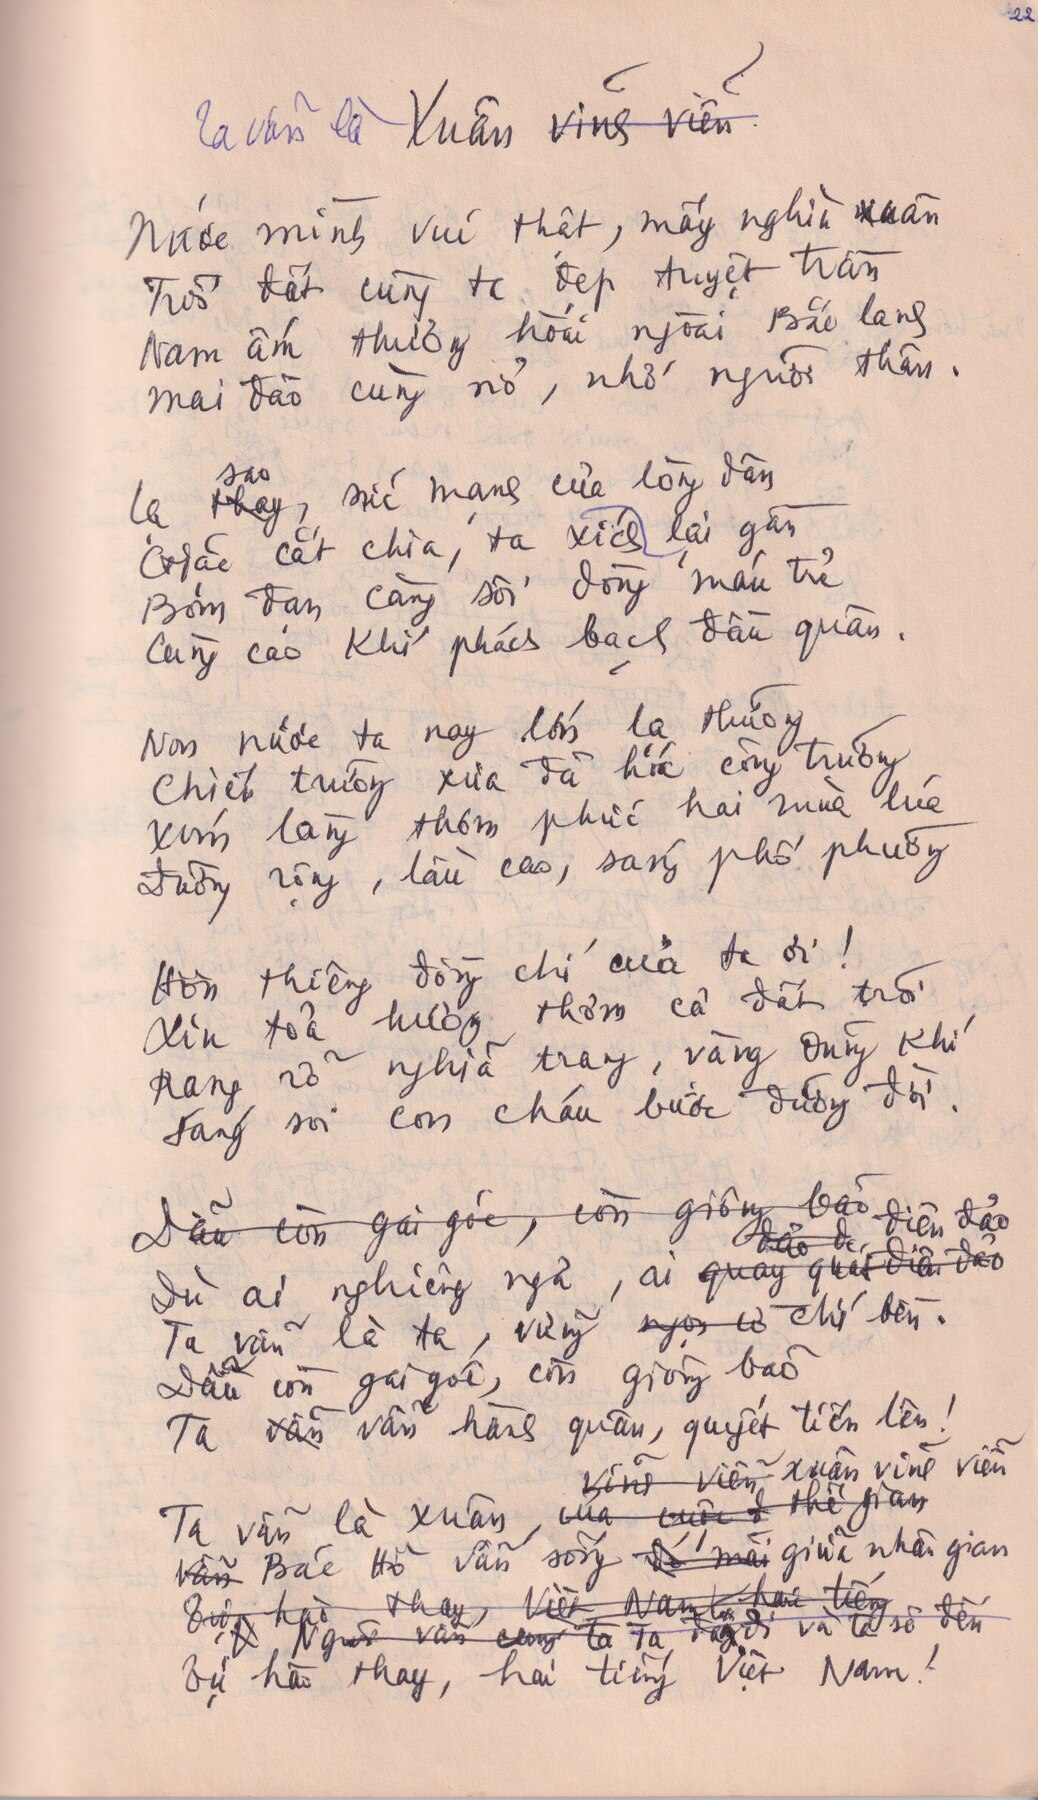 22
Ta vẫn là Xuân vĩnh viễn
Nước mình vui thật, mấy nghìn xuân
Trời đất cùng ta đẹp tuyệt trần
Nam ấm thường hoài ngoài Bắc lạnh
Mai đào cùng nở, nhớ người thân.
sao
Lạ thay, sức mạnh của lòng dân
Giặc cắt chia, ta xích lại gần
Bom đạn càng sôi dòng máu trẻ
Càng cao khí phách bạch đầu quân.
Non nước ta nay lớn lạ thường
Chiến trường xưa đã hóa công trường
Xóm làng thơm phức hai mùa lúa
Đường rộng, lầu cao, sáng phố phường
Hồn thiêng đồng chí của ta ơi!
Xin tỏa hương thơm cả đất trời
Rạng rỡ nghĩa trang, vầng dũng khí
Sáng soi con cháu bước đường đời.
Dẫu còn gai góc, còn giông bão
đảo điên đảo
Dù ai nghiêng ngả, ai quay quắt điên đảo
Ta vẫn là ta, vững ngọn cờ chí bền.
Dẫu còn gai góc, còn giông bão
Ta vẫn vẫn hành quân, quyết tiến lên!
vĩnh viễn xuân vĩnh viễn
Ta vẫn là xuân, của cuộc thế gian
vẫn Bác Hồ vẫn sống đó mãi giữa nhân gian
Tự hào thay, Việt Nam hai tiếng
Người vẫn cùng ta ta đang đi và ta sẽ đến
Tự hào thay, hai tiếng Việt Nam!